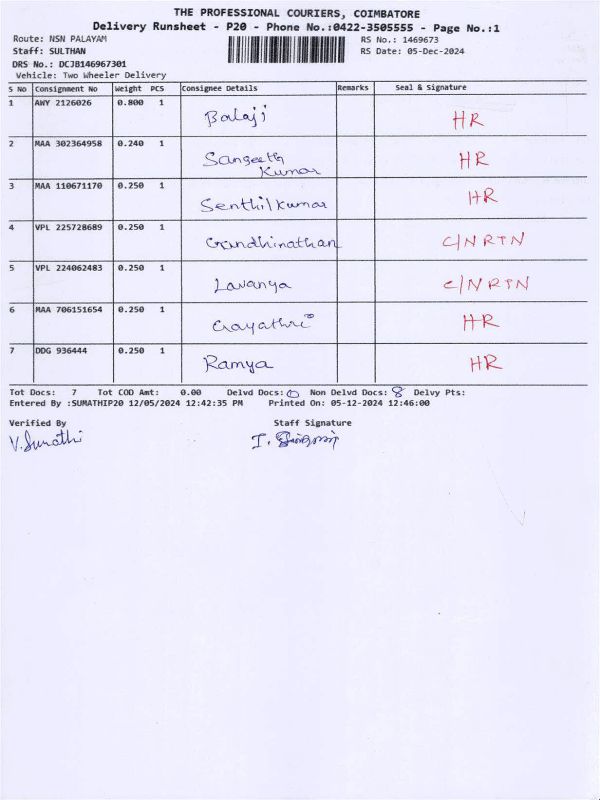 THE PROFESSIONAL COURIERS, COIMBATORE
Delivery Runsheet - P20 - Phone No.:0422-3505555 - Page No.:1
Route: NSN PALAYAM RS No.: 1469673
Staff: SULTHAN RS Date: 05-Dec-2024
DRS No.: DCJB146967301
Vehicle: Two Wheeler Delivery
S No Consignment No Weight PCS Consignee Details Remarks Seal & Signature
1 AWY 2126026 0.800 1 Balaji HR
2 MAA 302364958 0.240 1 Sangeeth Kumar HR
3 MAA 110671170 0.250 1 Senthilkumar HR
4 VPL 225728689 0.250 1 Gandhinathan C/N RTN
5 VPL 224062483 0.250 1 Lavanya C/N RTN
6 MAA 706151654 0.250 1 Gayathri HR
7 DDG 936444 0.250 1 Ramya HR
Tot Docs: 7 Tot COD Amt: 0.00 Delvd Docs: 0 Non Delvd Docs: 8 Delvy Pts:
Entered By :SUMATHIP20 12/05/2024 12:42:35 PM Printed On: 05-12-2024 12:46:00
Verified By Staff Signature
V. Sumathi